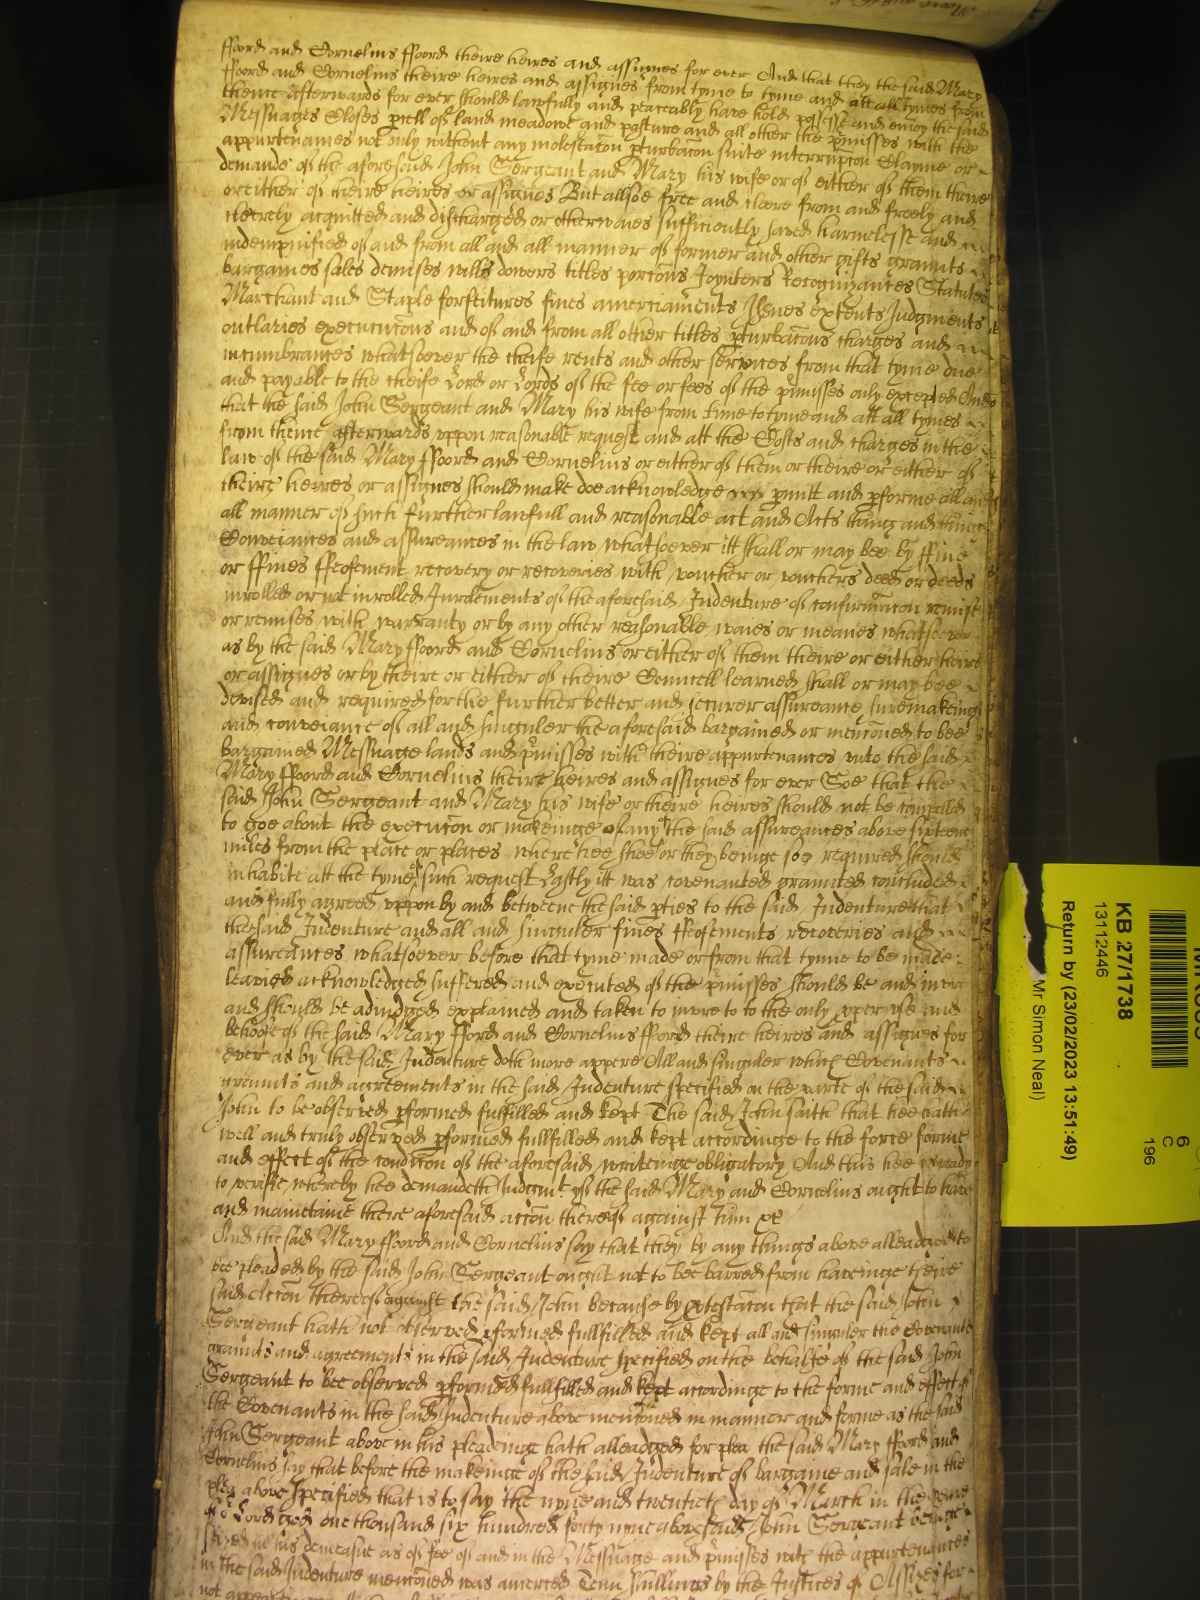 fford and Cornelius fford theire heires and assignes for ever And that they the said Mary
fford and Cornelius theire heires and assignes from tyme to tyme and att all tymes from
thence afterwards for ever should lawfully and peaceably have hold possesse and enioy the said
Messuages Closes pcell of land meadowe and pasture and all other the pmisses with the
appurtenances not only without any molestacon pturbacon suite interrupcon Clayme or
demande of the aforesaid John Sergeant and Mary his wife or of either of them theire
or either of theire heires or assignes But allsoe free and cleere from and freely and
cleerely acquitted and discharged or otherwaies sufficiently saved harmelesse and
indempnified of and from all and all manner of former and other gifts graunts
bargaines sales demises wills dowers titles porcons Joynters Recognizances Statutes
Marchant and Staple forfeitures fines amerciaments Issues extents Judgments
outlaries execucucons and of and from all other titles pturbacons charges and
incumbrances whatsoever the cheife rents and other services from that tyme due
and payable to the cheife Lord or Lords of the fee or fees of the pmisses only excepted And
that the said John Sergeant and Mary his wife from time to tyme and att all tymes
from thence afterwards uppon reasonable request and att the Costs and charges in the
law of the said Mary fford and Cornelius or either of them or theire or either of
theire heires or assignes should make doe acknowledge pmitt and pforme all and
all manner of such further lawfull and reasonable act and Acts thing and things
Conveiances and assureances in the law whatsoever itt shall or may bee by ffine
or ffines ffeofement recovery or recoveries with voucher or vouchers deed or deeds
inrolled or not inrolled Inrolements of the aforesaid Indenture of confirmacon remise
or remises with warranty or by any other reasonable waies or meanes whatsoever
as by the said Mary fford and Cornelius or either of them theire or either heires
or assignes or by theire or either of theire Councell learned shall or may bee
devised and required for the further better and securer assureance suremakeinge
and conveiance of all and singuler the aforesaid bargained or menconed to bee
bargained Messuage lands and pmisses with theire appurtenances unto the said
Mary fford and Cornelius theire heires and assignes for ever Soe that the
said John Sergeant and Mary his wife or theire heires should not be compelled
to goe about the execucon or makeinge of any the said assureances above sixteene
miles from the place or places where hee shee or they beinge soe required should
inhabite att the tyme of such request Lastly itt was covenanted graunted concluded
and fully agreed uppon by and betweene the said pties to the said Indenture that
the said Indenture and all and singuler fines ffeofements recoveries and
assureances whatsoever before that tyme made or from that tyme to be made
leavied acknowledged suffered and executed of the pmisses should be and inure
and should be adiudged explained and taken to inure to to the only pper use and
behoofe of the said Mary fford and Cornelius fford theire heires and assignes for
ever as by the said Indenture doth more appere All and singuler which Covenants
graunts and agreements in the said Indenture specified on the parte of the said
John to be observed pformed fulfilled and kept The said John saith that hee hath
well and truly observed pformed fullfilled and kept accordinge to the force forme
and effect of the condicon of the aforesaid writeinge obligatory And this hee is ready
to verifie whereby hee demandeth Judgmt yf the said Mary and Cornelius ought to have
and mainetaine there aforesaid accon thereof against him &c
And the said Mary fford and Cornelius say that they by any things above alleadged to
bee pleaded by the said John Sergeant ought not to bee barred from haveinge theire
said Accon thereof against the said John because by ptestacon that the said John
Sergeant hath not observed pformed fullfilled and kept all and singuler the Covenants
graunts and agreements in the said Indenture specified on the behalfe of the said John
Sergeant to bee observed pformed fullfilled and kept accordinge to the forme and effect of
the Covenants in the said Indenture above menconed in manner and forme as the said
John Sergeant above in his pleadeinge hath alleadged for plea the said Mary fford and
Cornelius say that before the makeinge of the said Indenture of bargaine and sale in the
plea above specified that is to say the nyne and twentieth day of March in the yeare
of or Lord god one thousand six hundred forty nyne abovesaid John Sergeant beinge
seized in his demeasne as of fee of and in the Messuage and pmisses with the appurtenances
in the said Indenture menconed was amerced Tenn shillings by the Justices of Assizes for
not
KB 27/1738
13112446
Return by (23/02/2023 13:51:49)
Mr Simon Neal)
6
C
196